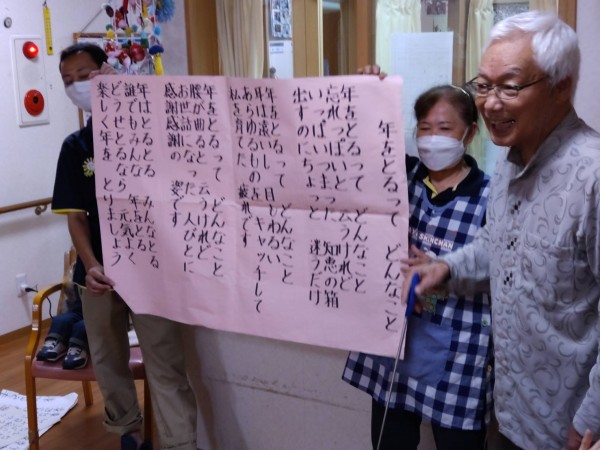 年をとるって どんなこと
年をとるって どんなこと
忘れっぽいと 云うけれど
いっぱいつまった 知恵の箱
出すのにちょっと 迷うだけ
年をとるって どんなこと
耳は遠いし 目もわるい
あらゆるもの を キャッチして
私を育てた 疲れです
年をとるって どんなこと
腰が曲ると 云うけれど
お世話になった 人びとに
感謝感謝の 姿です
年はとるとる みんなとる
誰でもみんな 年をとる
どうせとるなら 元気よく
楽しく年を とりましょう
SHINCHAN